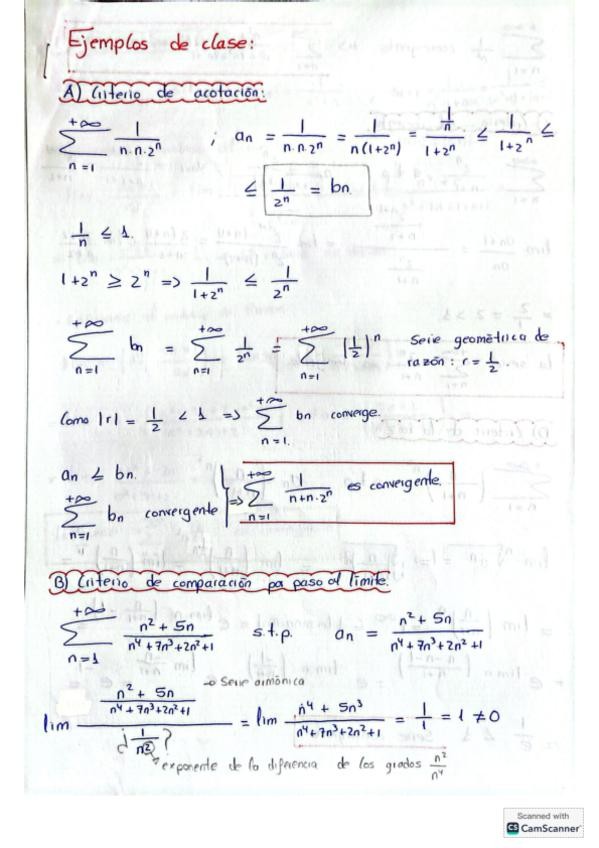 Ejemplos de clase:
A) Criterio de acotación:
+∞ ∑ n=1 1/(n·n·2ⁿ) ; an = 1/(n·n·2ⁿ) = 1/(n(1+2ⁿ)) = (1/n)/(1+2ⁿ) ≤ 1/(1+2ⁿ) ≤
≤ 1/2ⁿ = bn.
1/n ≤ 1.
1+2ⁿ ≥ 2ⁿ => 1/(1+2ⁿ) ≤ 1/2ⁿ
+∞ ∑ n=1 bn = +∞ ∑ n=1 1/2ⁿ = +∞ ∑ n=1 (1/2)ⁿ Serie geométrica de
razón: r = 1/2.
Como |r| = 1/2 < 1 => +∞ ∑ n=1. bn converge.
an ≤ bn.
+∞ ∑ n=1 bn convergente => +∞ ∑ n=1 1/(n+n·2ⁿ) es convergente.
B) Criterio de comparación pa paso al límite.
+∞ ∑ n=1 (n²+5n)/(n⁴+7n³+2n²+1) s.t.p. an = (n²+5n)/(n⁴+7n³+2n²+1)
lim ((n²+5n)/(n⁴+7n³+2n²+1))/(¿1/n²?) = lim (n⁴+5n³)/(n⁴+7n³+2n²+1) = 1/1 = 1 ≠ 0
→ Serie armónica
exponente de la diferencia de los grados n²/n⁴
Scanned with
CS CamScanner